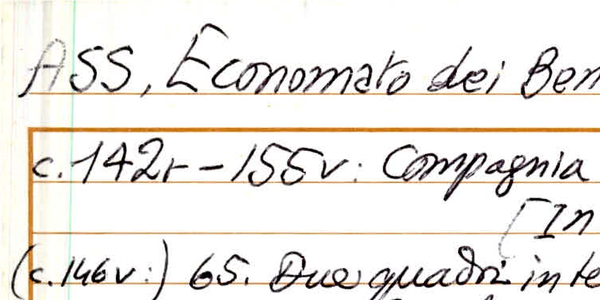 ASS, Economato dei Ben
c. 142r - 155v: Compagnia
[In
(c. 146v:) 65. Due quadri in te